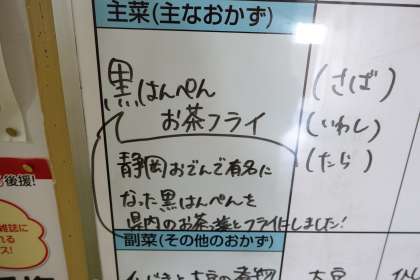 主菜(主なおかず)
黒はんぺん
お茶フライ
(さば)
(いわし)
(たら)
静岡おでんで有名に
なった黒はんぺんを
県内のお茶葉とフライにしました!
副菜(その他のおかず)
大豆
後援!